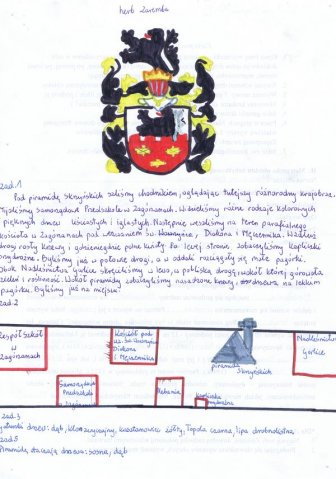 herb Zaremba
zad.1
Pod piramidę Skrzyńskich szliśmy chodnikiem, oglądając tutejszy różnorodny krajobraz.
Mijaliśmy samorządowe Przedszkole w Zagórzanach. Widzieliśmy różne rodzaje kolorowych
i pięknych drzew liściastych i iglastych. Następnie weszliśmy na teren parafialnego
kościoła w Zagórzanach pod wezwaniem św. Wawrzyńca, Diakona i Męczennika. Wzdłuż
drogi rosły krzewy i gdzieniegdzie polne kwiaty. Po lewej stronie, zobaczyliśmy kapliczki
przydrożne. Byliśmy już w połowie drogi, a w oddali rozciągały się małe pagórki.
Obok Nadleśnictwa Gorlice skręciliśmy w lewo, w pobliską drogę, wokół której górowała
zieleń i roślinność. Wokół piramidy zobaczyliśmy nasadzone krzewy, drzewa na lekkim
pagórku. Byliśmy już na miejscu.
zad.2
Zespół Szkół
w
Zagórzanach
Kościół pod
wz. św. Wawrzyńca
Diakona
i Męczennika
piramida
Skrzyńskich
Nadleśnictwo
Gorlice
Samorządowe
Przedszkole
w Zagórzanach
Plebania
Kapliczka
przydrożna
zad.3
gatunki drzew: dąb, klon zwyczajny, kasztanowiec żółty, Topola czarna, lipa drobnolistna
zad.5
Piramidę otaczają drzewa: sosna, dąb